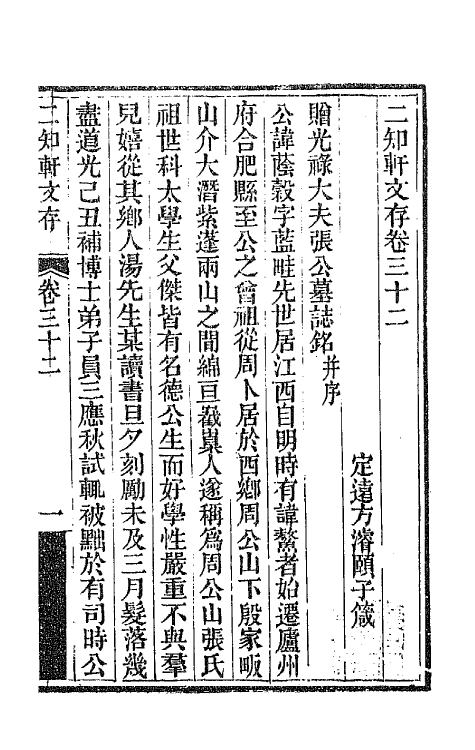 二知軒文存卷三十二
定遠方濬頤子箴
贈光祿大夫張公墓誌銘并序
公諱蔭穀字藍畦先世居江西自明時有諱鰲者始遷廬州
府合肥縣至公之曾祖從周卜居於西鄉周公山下殷家畈
山介大潛紫蓬兩山之間綿亘巀嶪人遂稱為周公山張氏
祖世科太學生父傑皆有名德公生而好學性嚴重不與羣
兒嬉從其鄉人湯先生某讀書旦夕刻勵未及三月髮落幾
盡道光己丑補博士弟子員三應秋試輒被黜於有司時公
二知軒文存
卷三十二
一